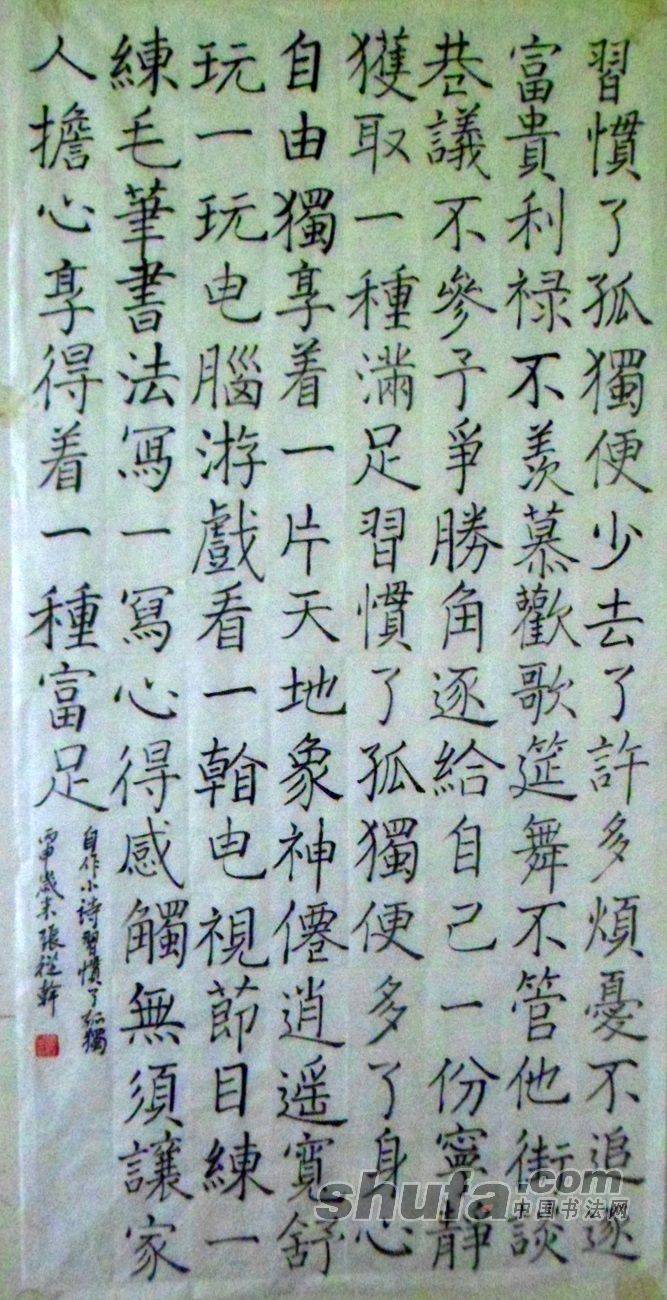 習慣了孤獨便少去了許多煩憂不追逐
富貴利禄不羨慕歡歌筵舞不管他街談
巷議不參予爭勝角逐給自己一份寧靜
獲取一種滿足習慣了孤獨便多了身心
自由獨享着一片天地象神僊逍遥寬舒
玩一玩电腦游戲看一看电視節目練一
練毛筆書法寫一寫心得感觸無須讓家
人擔心享得着一種富足
自作小詩習慣了孤獨
丙申歲末張從幹
shufa.com
中国书法网